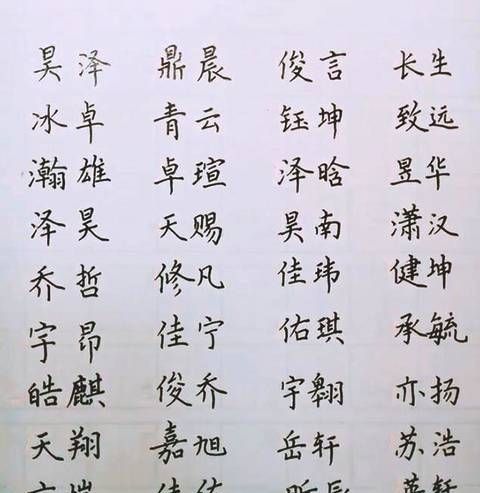 昊泽 鼎晨 俊言 长生
冰卓 青云 钰坤 致远
瀚雄 卓瑄 泽晗 昱华
泽昊 天赐 昊南 潇汉
乔哲 修凡 佳玮 健坤
宇昂 佳宁 佑琪 承毓
皓麒 俊乔 宇翱 亦扬
天翔 嘉旭 岳轩 苏浩